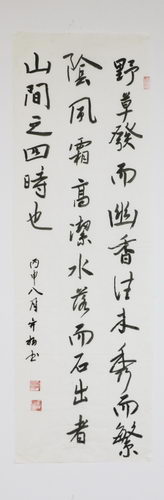 野草發而幽香佳木秀而繁
陰風霜高潔水落而石出者
山間之四時也
丙申八月